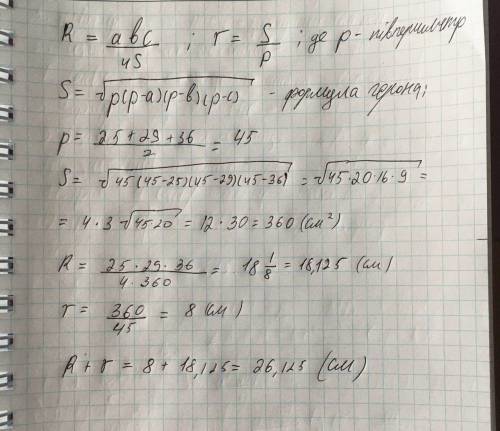 R = abc / 4S ; r = S / p ; де p - півпериметр
S = √p(p-a)(p-b)(p-c) - формула герона;
p = 25 + 29 + 36 / 2 = 45
S = √45(45-25)(45-29)(45-36) = √45·20·16·9 =
= 4·3·√45·20 = 12·30 = 360 (см²)
R = 25·29·36 / 4·360 = 18 1/8 = 18,125 (см)
r = 360 / 45 = 8 (см)
R + r = 8 + 18,125 = 26,125 (см)